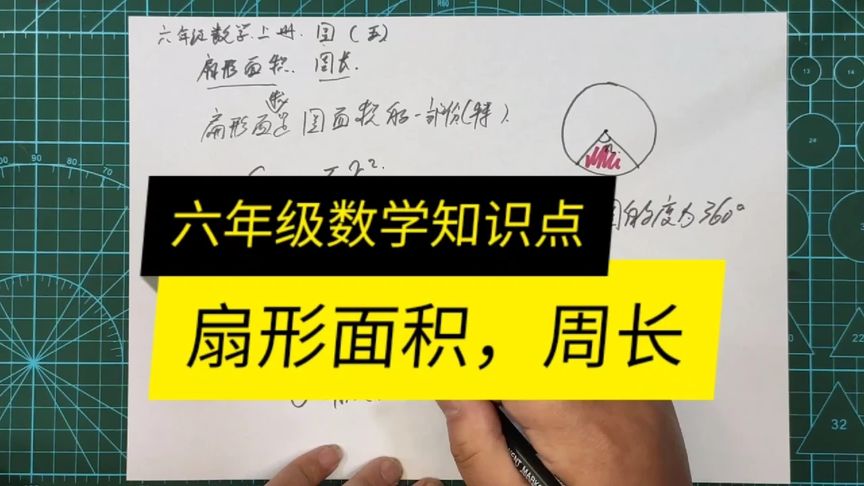 六年级数学上册.圆(五)
扇形面积.周长.
积
扇形面是圆面积的一部份(特).
圆的度为360°
六年级数学知识点
扇形面积，周长
13
14
2"
32